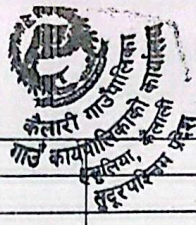 कैलारी गाउँपालिका
गाउँ कार्यपालिकाको कार्यालय
कैलाली
सुदूरपश्चिम प्रदेश